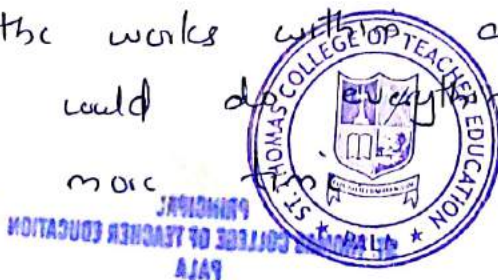 the works within
would do everyth
more time
ST. THOMAS COLLEGE OF TEACHER EDUCATION
★ PALA ★
PRINCIPAL
ST. THOMAS COLLEGE OF TEACHER EDUCATION
PALA